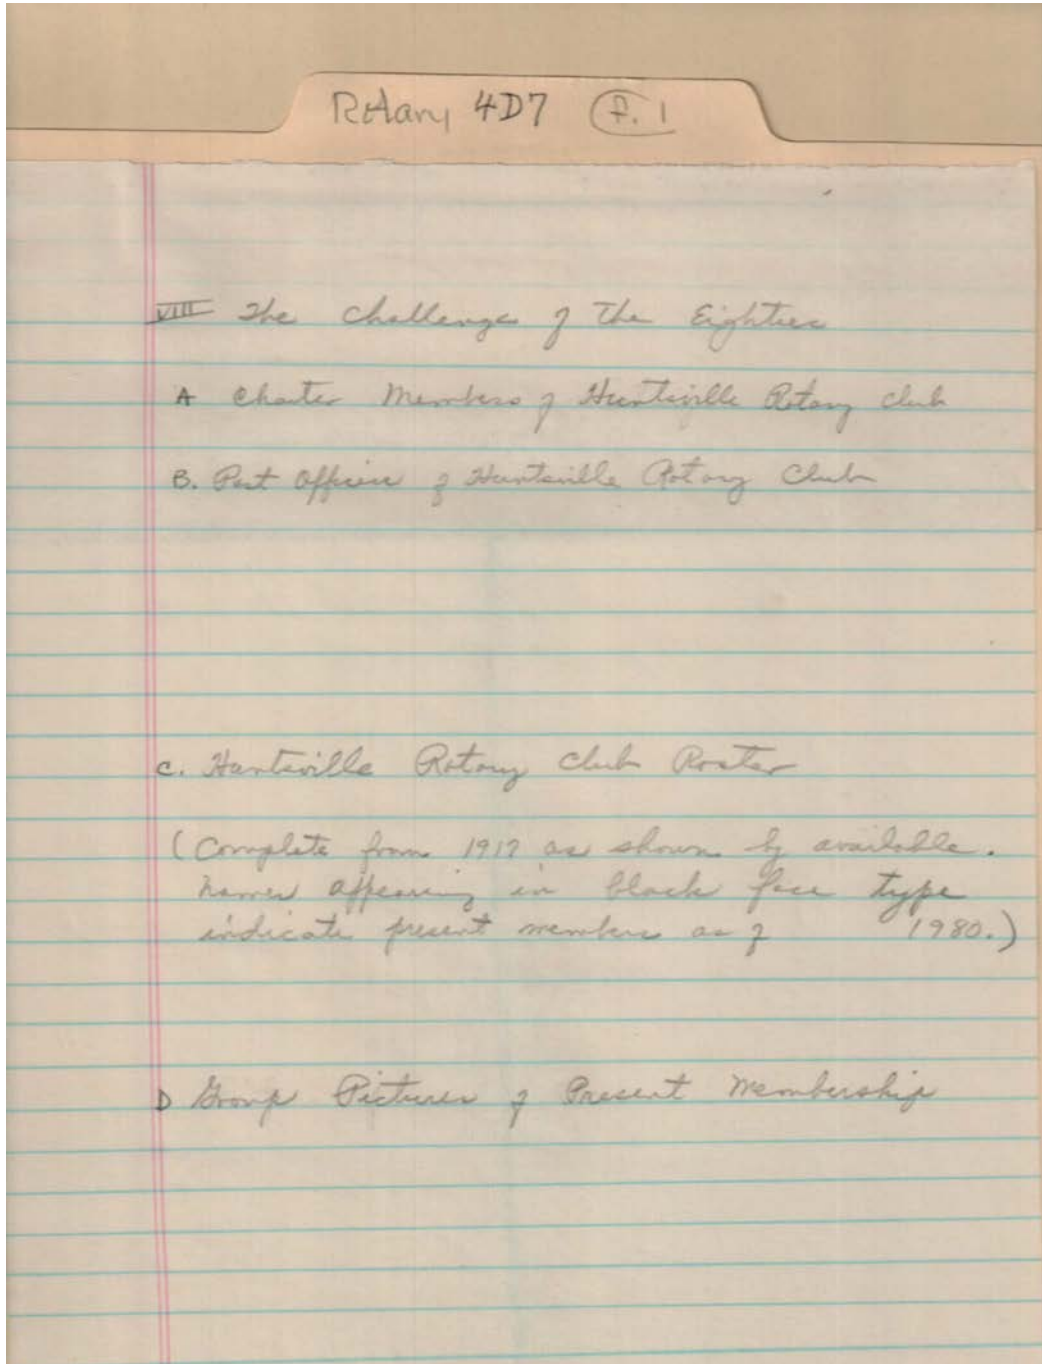 Rotary 4D7 f. 1
VIII The Challenge of The Eighties
A Charter Members of Huntsville Rotary Club
B. Past Officers of Huntsville Rotary Club
C. Huntsville Rotary Club Roster
(Complete from 1917 as shown by available.
Names appearing in black face type
indicate present members as of 1980.)
D Group Pictures of Present Membership